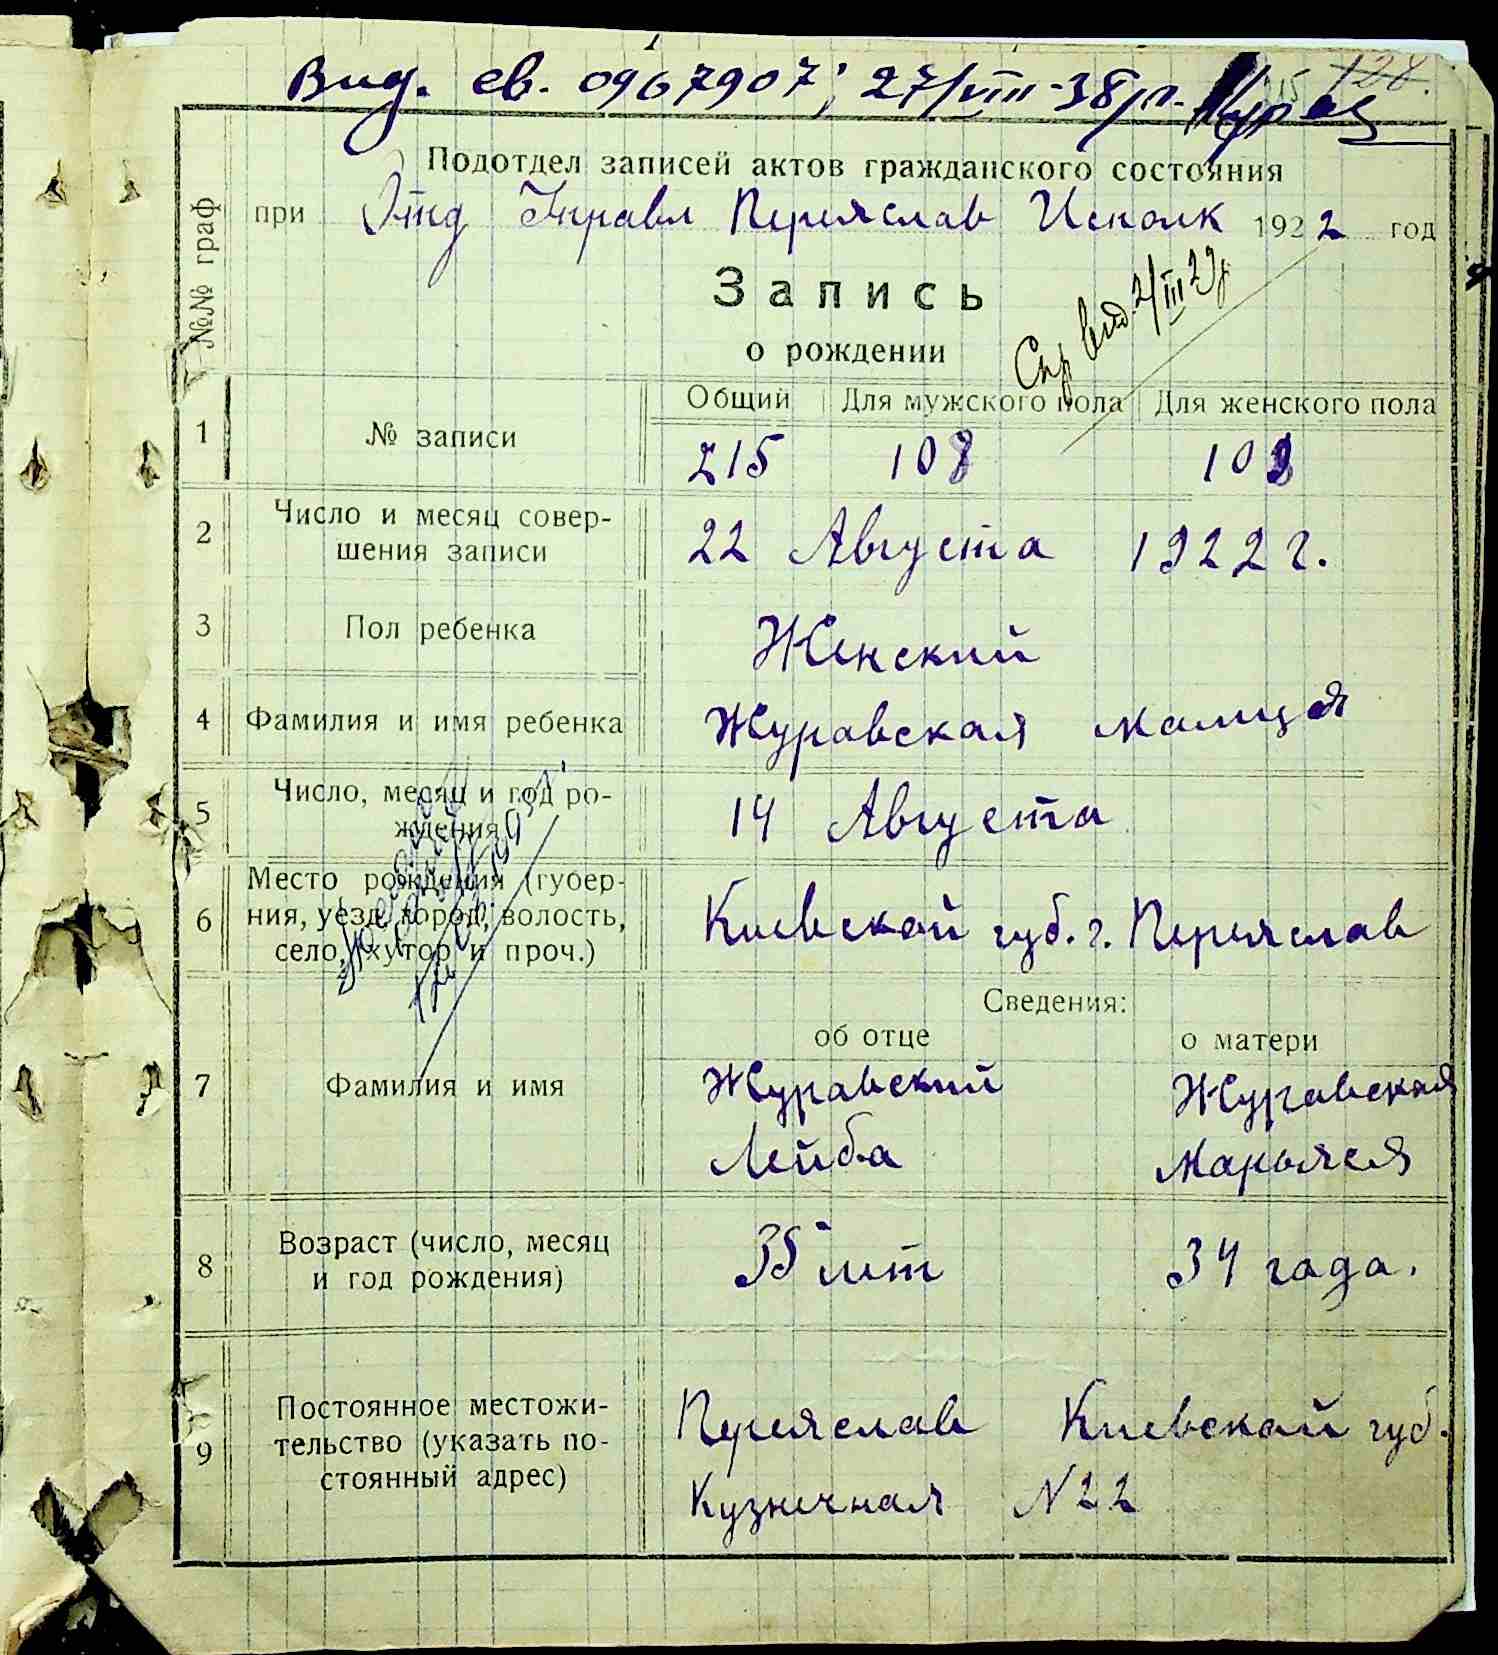 Вид. св. 0967907; 27/VIII-38 р.
128.
Подотдел записей актов гражданского состояния
при Отд Управл Переяслав Исполк 1922 год
№№ граф
Запись
о рождении
Спр вид. 2/III 29 р
Общий Для мужского пола Для женского пола
1 № записи 215 108 108
2 Число и месяц совер-
шения записи 22 Августа 1922 г.
3 Пол ребенка Женский
4 Фамилия и имя ребенка Журавская Малиця
5 Число, месяц и год ро-
ждения 14 Августа
6 Место рождения (губер-
ния, уезд, город, волость,
село, хутор и проч.) Киевской губ. г. Переяслав
Сведения:
об отце о матери
7 Фамилия и имя Журавский Журавская
Лейба Марьяся
8 Возраст (число, месяц
и год рождения) 35 лет 34 года.
9 Постоянное местожи-
тельство (указать по-
стоянный адрес) Переяслав Киевской губ.
Кузнечная N 22